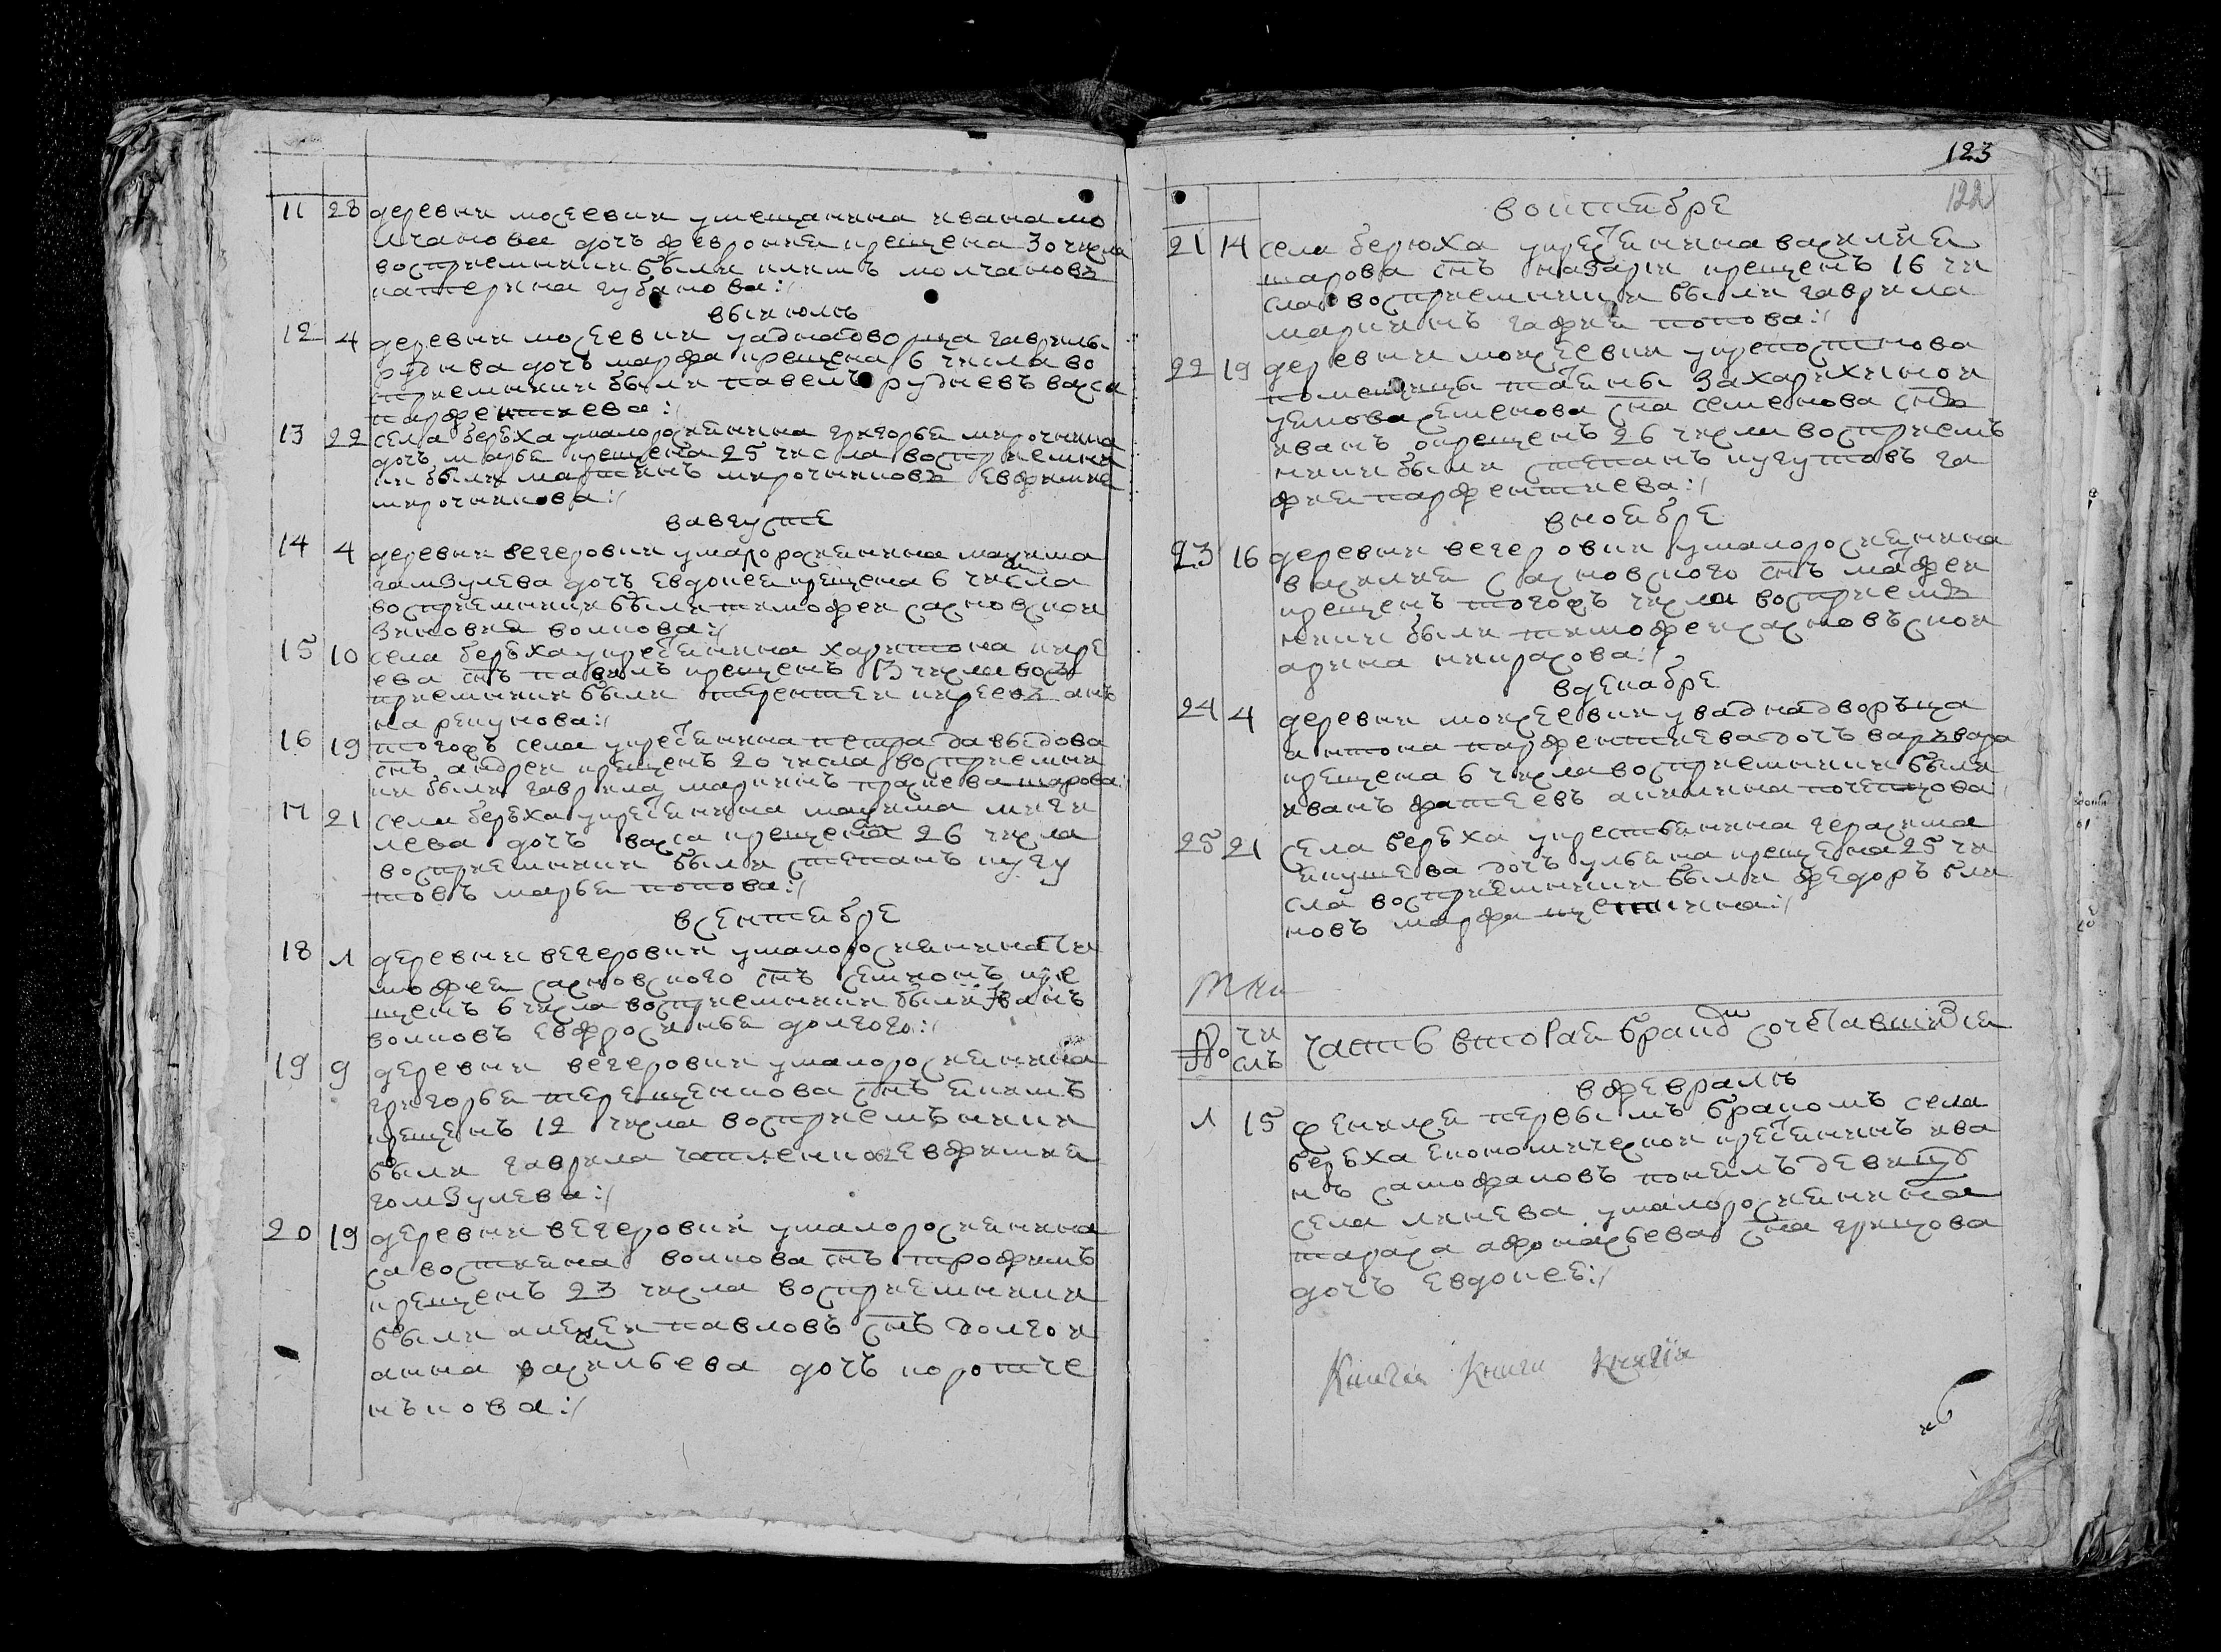 11 28 деревни мосеевки умещанина ивана мо
лчанова дочъ февронея крещена 30 числа
восприемники были климъ молчановъ
катерина губанова:/
въиюлѣ
12 4 деревни мосеевки уаднадворца гаврилы
руднева дочъ марфа крещена 6 числа во
сприемники были павелъ рудневъ васса
парфентиева:/
13 22 села берѣха умалоросиянина григорья мирочника
дочъ марья крещена 25 числа восприемни
ки были мартинъ мирочниковъ евфимия
мирочникова:/
вавгусте
14 4 деревни вегеровки умалоросиянина максима
гамзулева дочъ евдокея крещена 6 числа
восприемники были тимофеи сасновскои
зиновия волкова:/
15 10 села берѣха укрестянина харитона кире
ева снъ павелъ крещенъ 13 числа воз
приемники были терентеи киреевъ анъ
на рекунова:/
16 19 тогожъ села укрестянина петра давыдова
снъ андреи крещенъ 20 числа восприемни
ки были гаврила маркинъ праскева шарова:/
17 21 села берѣха укрестянина максима миги
лева дочъ васса крещена 26 числа
восприемники были степанъ кугу
товъ марья попова:/
всентябре
18 1 деревни вегеровки умалоросиянина ти
мофея сасновского снъ семионъ кре
щенъ 6 числа восприемники были иванъ
волковъ евфросинья долгого:/
19 9 деревни вегеровки умалоросиянина
григорья терещенкова снъ екимъ
крещенъ 12 числа восприемъники
были гаврила евфимия
гомзулева:/
20 19 деревни вегеровки умалоросиянина
савостияна волкова снъ трофимъ
крещенъ 23 числа восприемники
были алексеи павловъ снъ долгои
анна васильева дочъ коротче
нъкова:/
123
122
воктябре
21 14 села берюха укрестянина василия
шарова снъ назарии крещенъ 16 чи
сла восприемники были гаврила
маркинъ гафия попова:/
22 19 деревни моисеевки укрепостнова
помещицы татяны захарихинои
семенова сна семенова снъ
иванъ окрещенъ 26 числа восприемъ
ники были степанъ кугутовъ га
фия парфентиева:/
вноябре
23 16 деревни вегеровки умалоросиянина
василия сасновского снъ матфеи
крещенъ тогожъ числа восприемъ
ники были тимофеи сасновъскои
арина некрасова:/
вдекабре
24 4 деревни моисеевки уваднадворъца
антона парфентиева дочъ варъвара
крещена 6 числа восприемники были
иванъ фатеевъ акилина
25 21 села берѣха укрестьянина герасима
екушева дочъ ульяна крещена 25 чи
сла восприемники были федоръ бли
новъ марфа
№ чи
слъ часть вторая о бракосочетавшихся
вфевралѣ
1 15 женился первымъ бракомъ села
берѣха економическои крестянинъ ива
нъ самофаловъ понялъ девицу
села линева умалоросиянина
тараса афонасьева сна грицова
дочъ евдокею:/
Книги Книги Книги